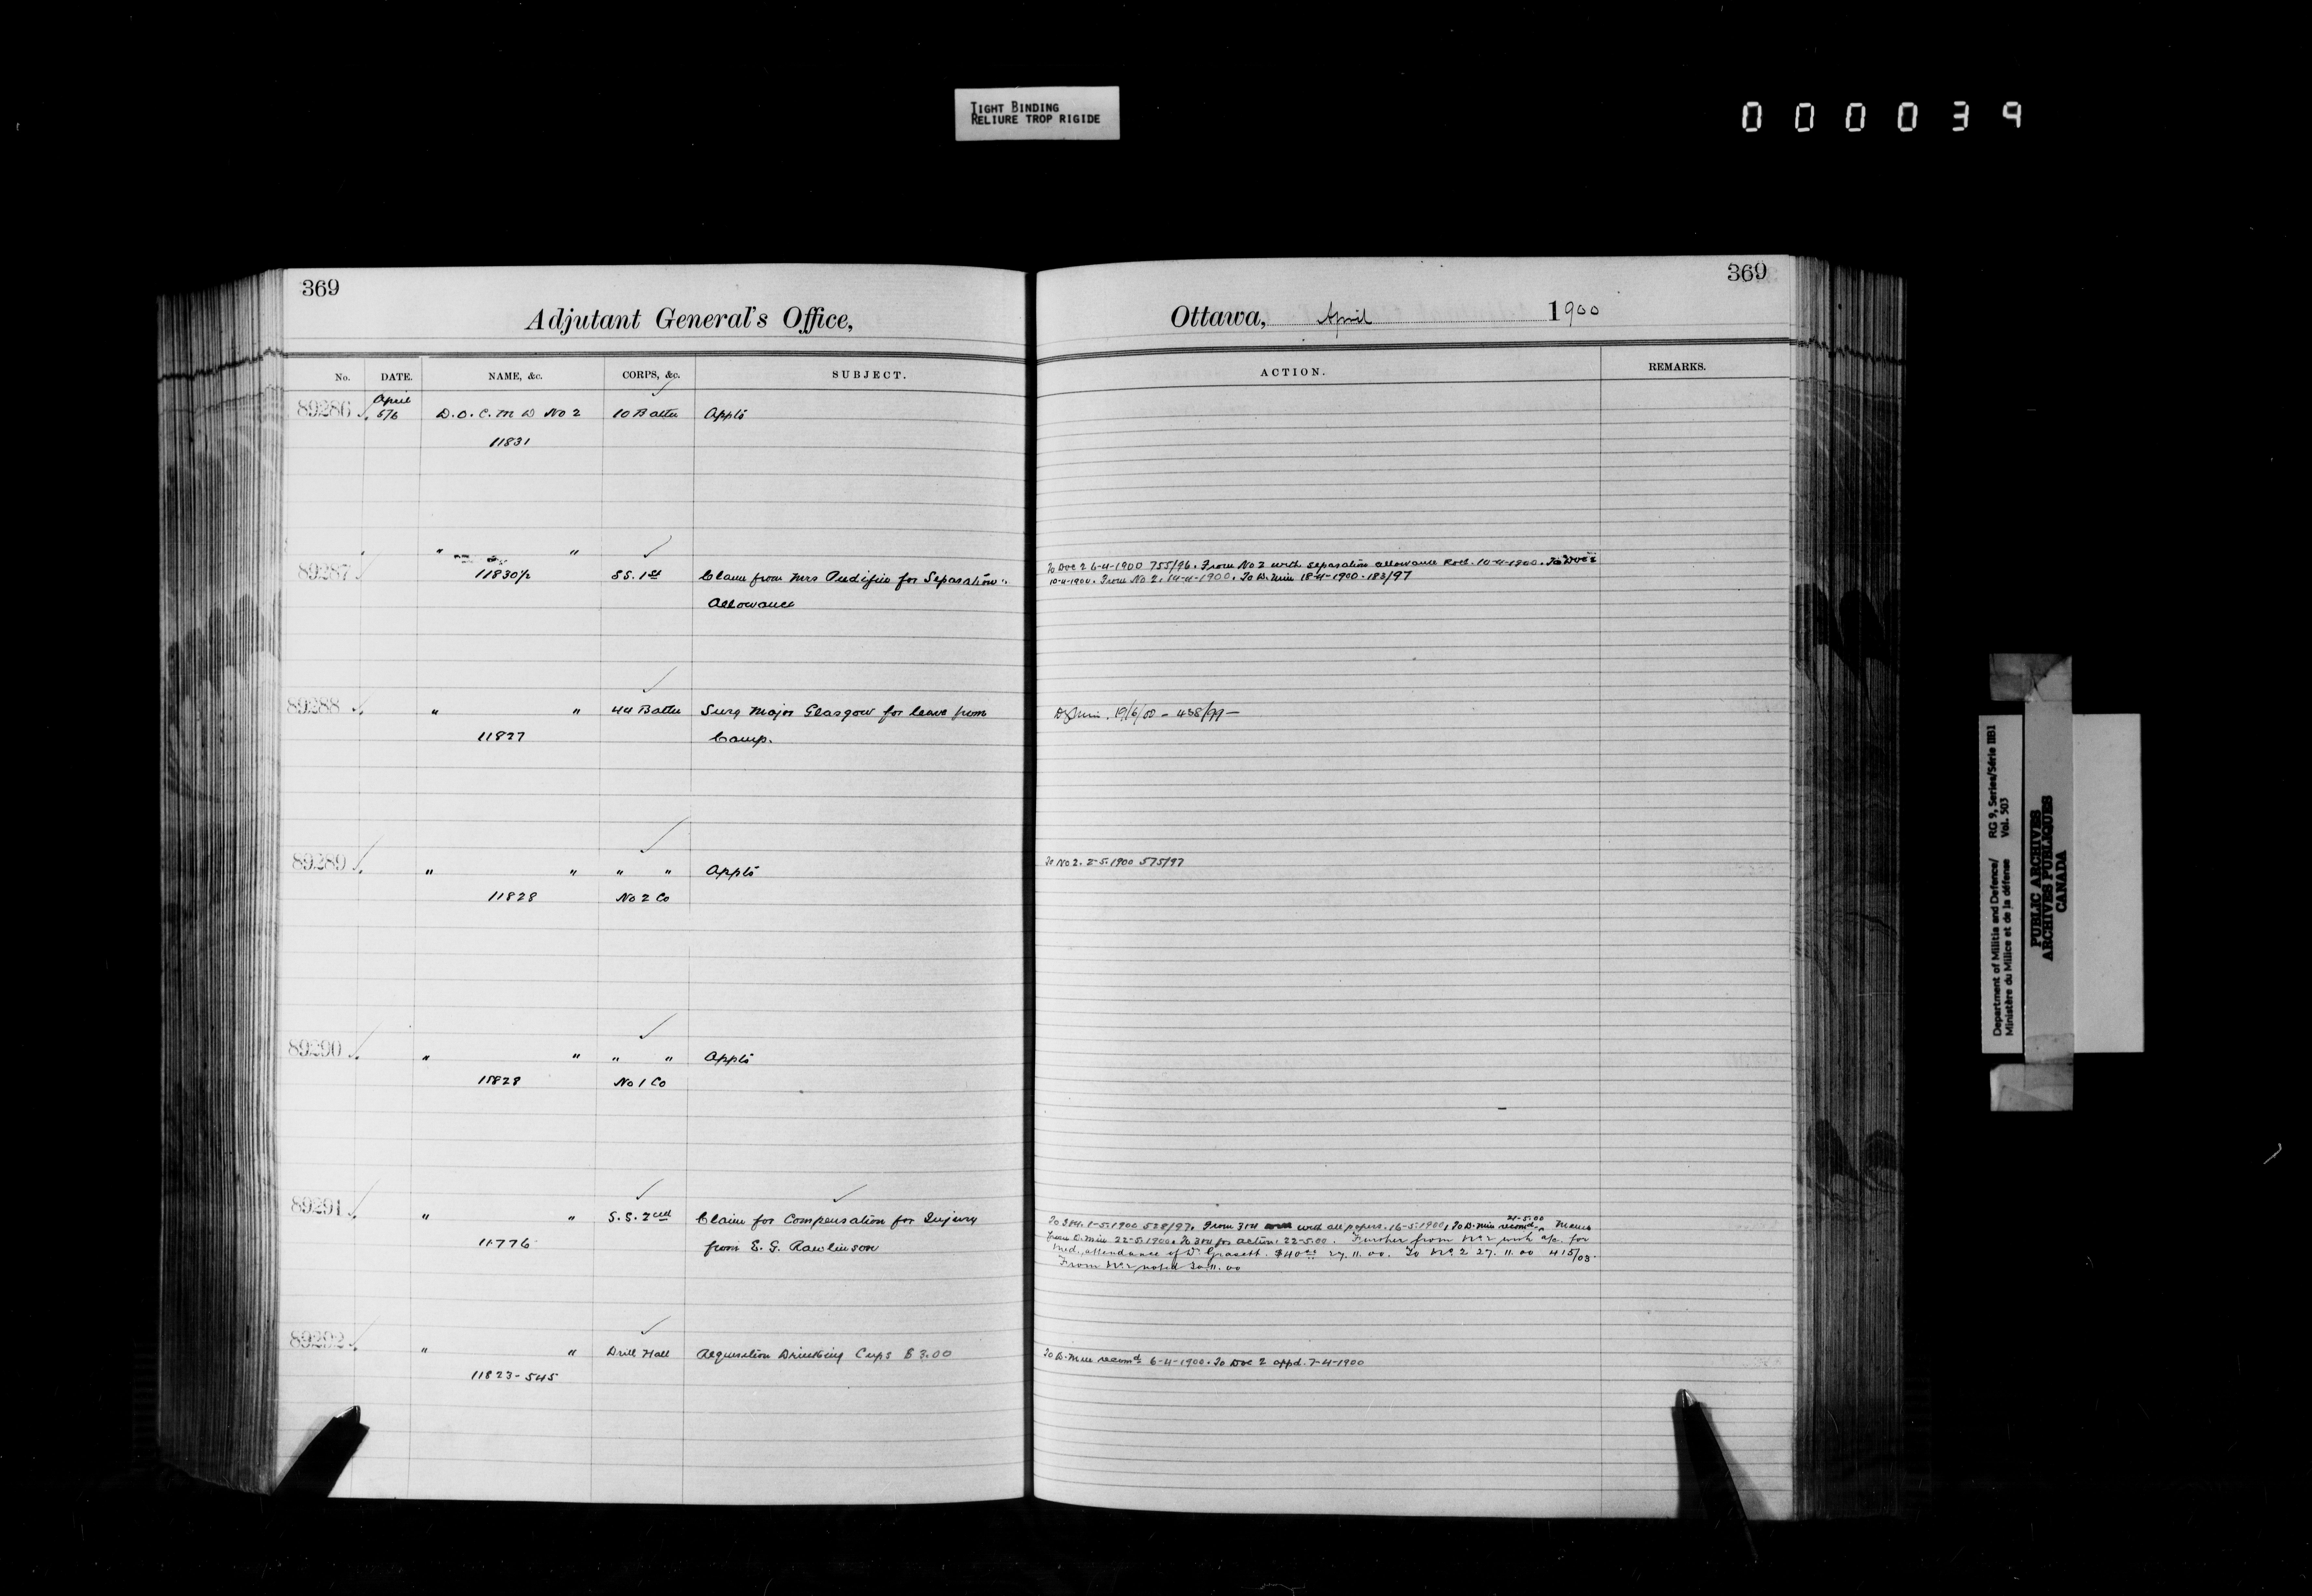 TIGHT BINDING
RELIURE TROP RIGIDE
000039
369
Adjutant General's Office,
No. DATE. NAME, &c. CORPS, &c. SUBJECT.
89286 April 5/6 D.O.C.M D No 2 10 Battn Appts
11831
" "
89287 11830½ SS. 1st Claim from Mrs for Separation
Allowance
89288 " " 44 Battn Surg Major Glasgow for leave from
11827 Camp.
89289 " " " " Appts
11828 No 2 Co
89290 " " " " Appts
11829 No 1 Co
89291 " " S.S. 2nd Claim for Compensation for Injury
11776 from E. G. Rawlinson
89292 " " Drill Hall Requisition Drinking Cups $3.00
11823-545
369
Ottawa, April 1900
ACTION. REMARKS.
To Doc 2 6-4-1900 755/96. From No 2 with separation allowance Roll. 10-4-1900. To Doc 2
10-4-1900. From No 2. 14-4-1900. To D. Min 18-4-1900. 183/97
19/6/00 - 438/99 -
To No 2. 2-5-1900 575/97
21-5-00
1-5-1900 528/97. From with all papers. 16-5-1900, To D. Min recomd. Memo
from D. Min 22-5-1900. To for action. 22-5-00. Further from No 2 with a/c. for
med. attendance of Dr Grasett. $40.00 27.11.00. To No 2 27.11.00 415/03.
From No 2 noted 30.11.00
To D. Min recomd 6-4-1900. To Doc 2 appd. 7-4-1900
Department of Militia and Defence/ RG 9, Series/Série IIB1
Ministère du Milice et de la défense Vol. 503
PUBLIC ARCHIVES
ARCHIVES PUBLIQUES
CANADA